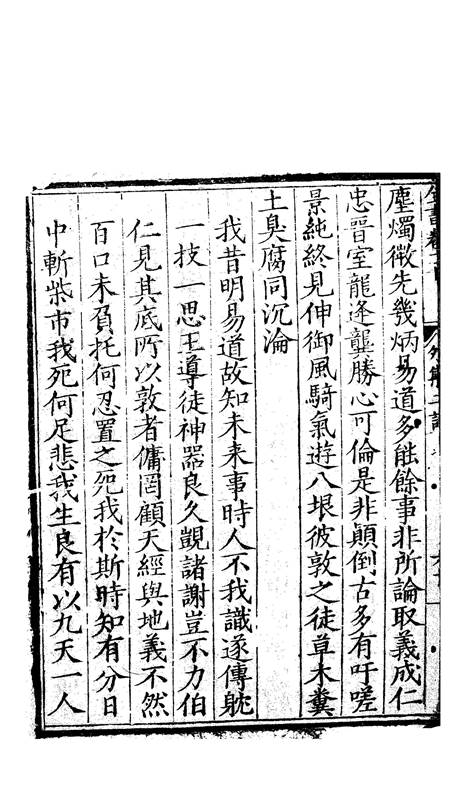 塵燭微先幾炳易道多能餘事非所論取義成仁
忠晉室龍逢龔勝心可倫是非顛倒古多有吁嗟
景純終見伸御風騎氣遊八垠彼敦之徒草木糞
土臭腐同沉淪
我昔明易道故知未来事時人不我識遂傳躭
一技一思王導徒神器良久覬諸謝豈不力伯
仁見其底所以敦者傭罔顧天經與地義不然
百口未負托何忍置之死我於斯時知有分日
中斬柴市我死何足悲我生良有以九天一人